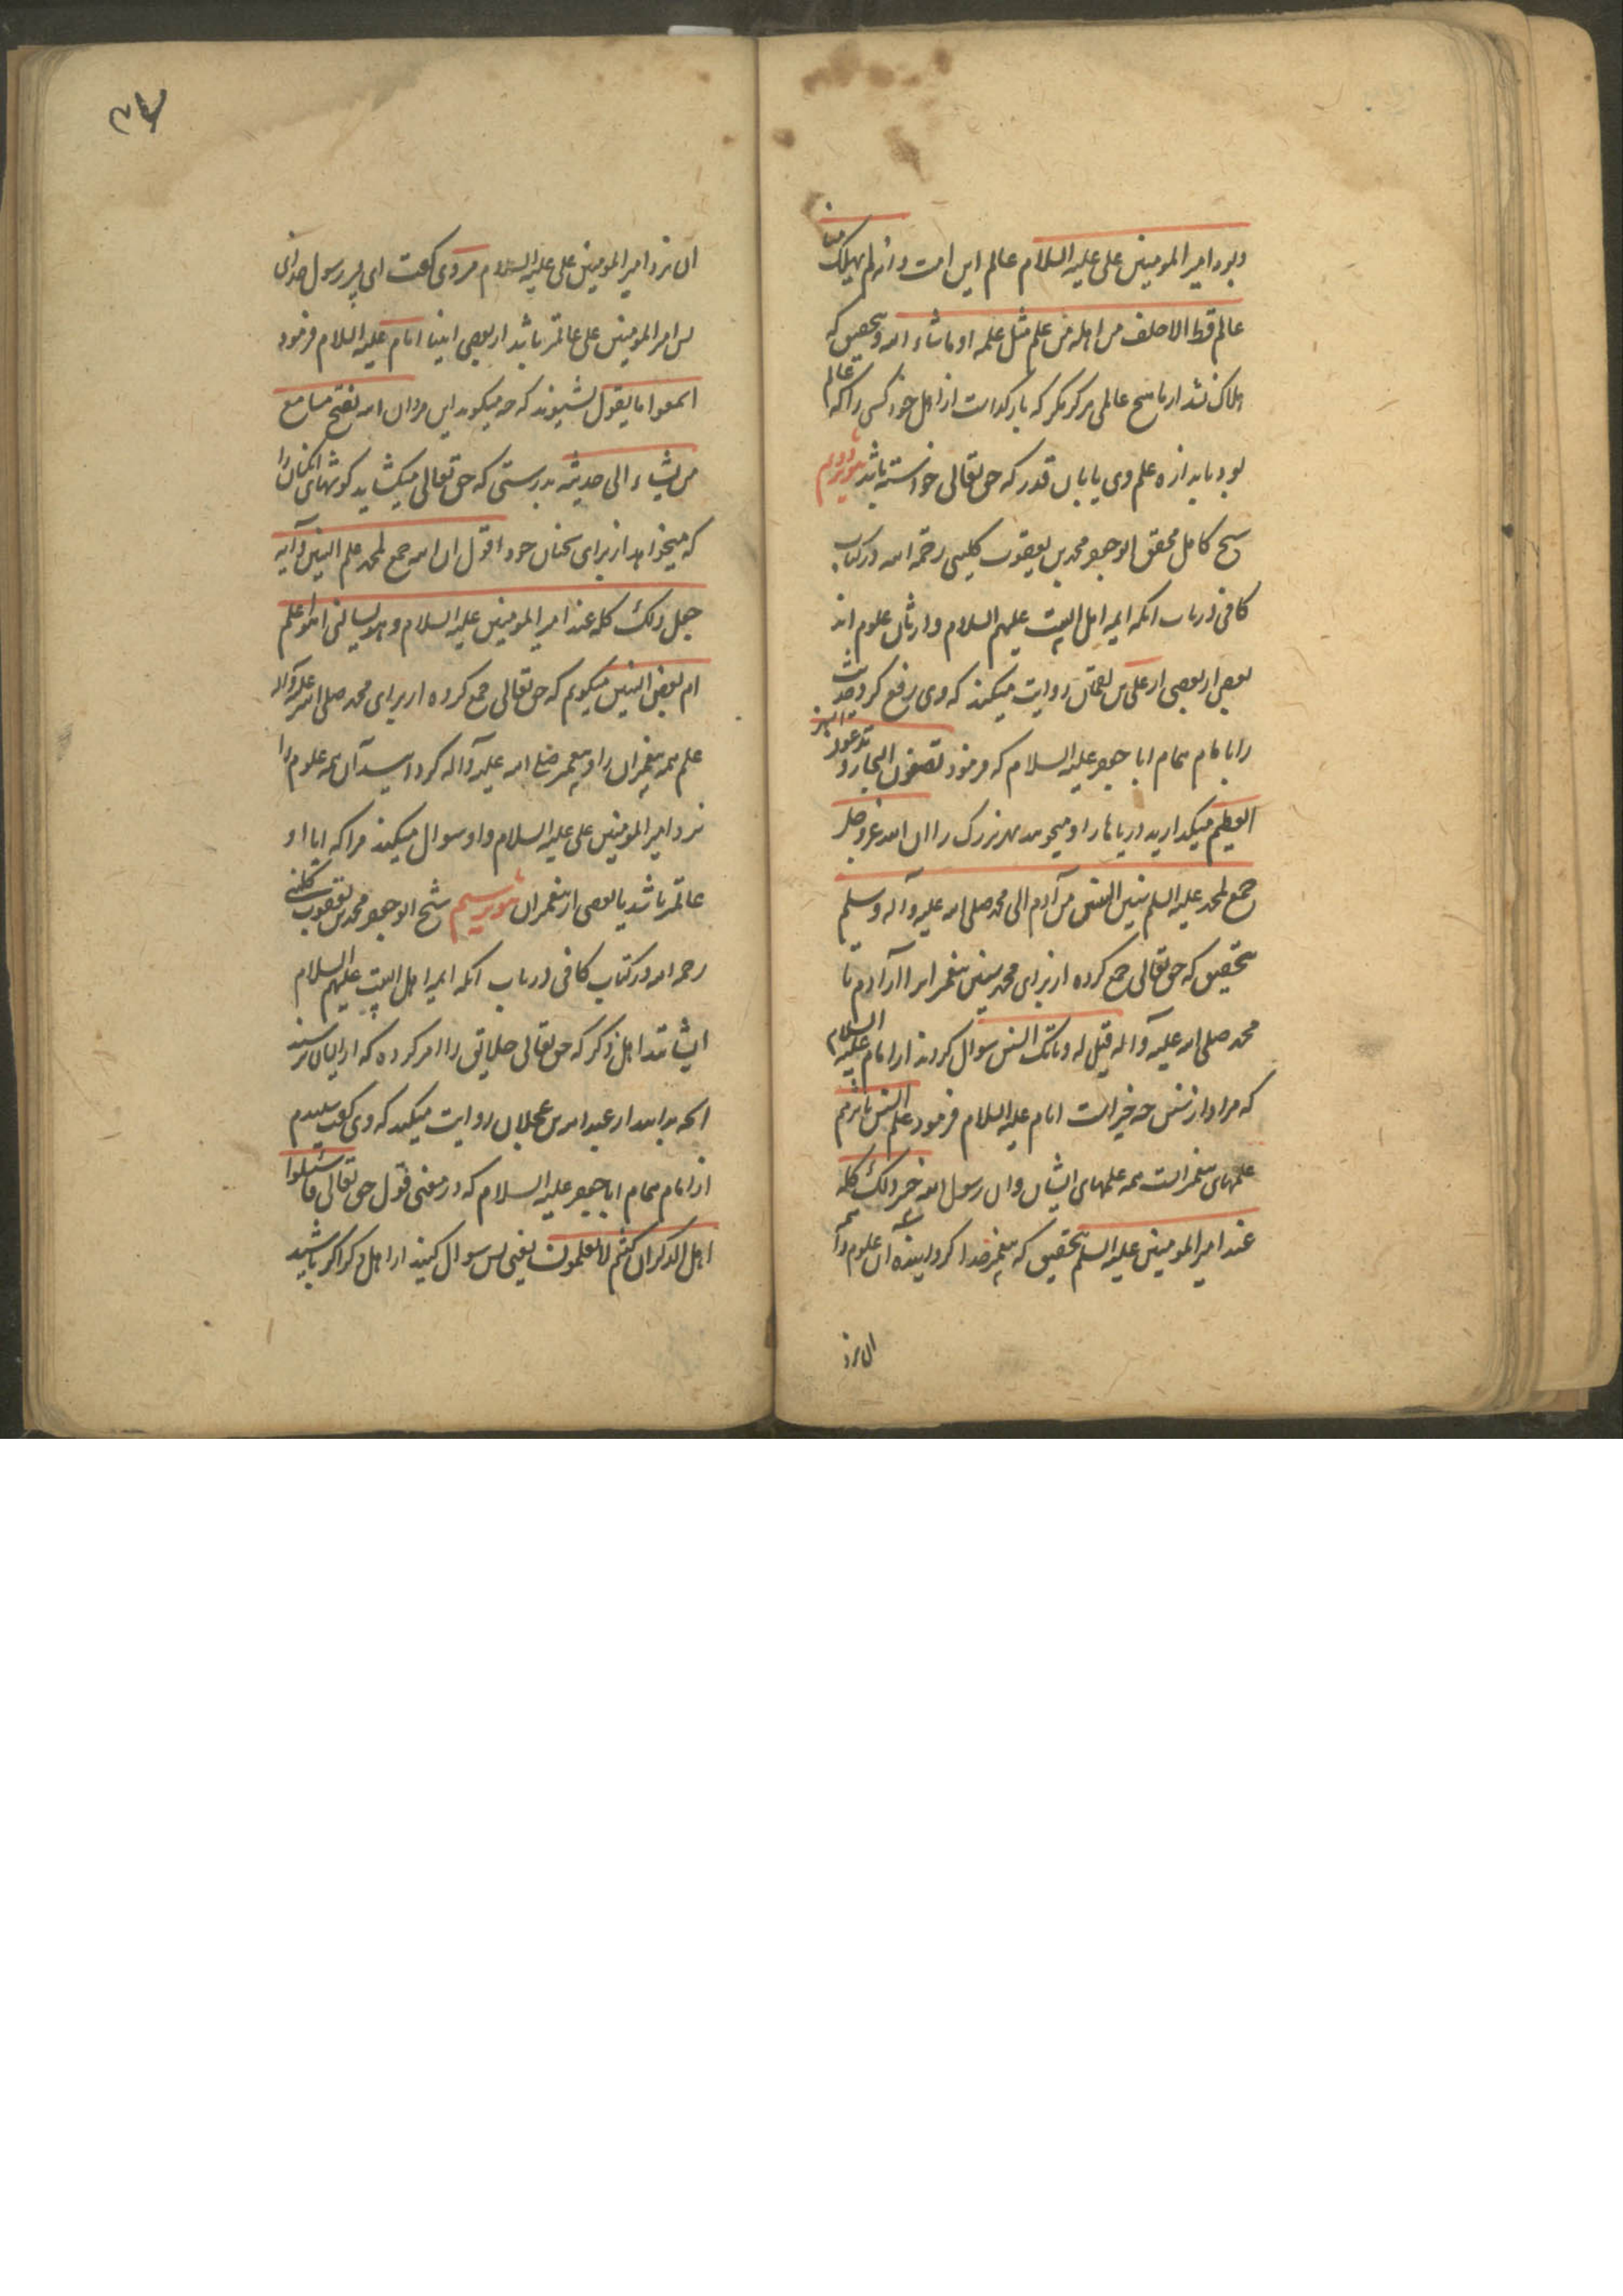 وبود امیر المومنین علی علیه السلام عالم این امت وانه لم یهلک منا
عالم قط الا خلف من اهله من علم مثل علمه او ما شاء الله وبتحقیق که
هلاک نشد از ما هیچ عالمی هرگز مگر که بازگذاشت از اهل خود کسی را که عالم
بود باندازه علم وی یا بان قدر که حق تعالی خواسته باشد تنویر دویم
شیخ کامل محقق ابو جعفر محمد بن یعقوب کلینی رحمه الله در کتاب
کافی در باب آنکه ایمه اهل البیت علیهم السلام وارثان علوم اند
بعضی از بعضی از علی بن نعمان روایت میکند که وی رفع کرد حدیث
را بامام همام ابا جعفر علیه السلام که فرمود تمصون البحار و تدعون النهر
العظیم میگذارید دریاها را و میجویید نهر بزرگ را ان الله عز وجل
جمع لمحمد علیه السلم سنین النبیین من آدم الی محمد صلی الله علیه وآله وسلم
بتحقیق که حق تعالی جمع کرده از برای محمد سنین پیغمبران را از آدم تا
محمد صلی الله علیه وآله قیل له وما تلک السنن سوال کردند از امام علیه السلام
که مراد از سنن چه چیز است امام علیه السلام فرمود علم النبیین باسرهم
علمهای پیغمبرانست همه علمهای ایشان وان رسول الله صیر ذلک کله
عند امیر المومنین علیه السلم بتحقیق که پیغمبر خدا گردانیده آن علوم را همه
آن نزد
آن نزد امیر المومنین علی علیه السلام مردی گفت ای پسر رسول خدای
پس امیر المومنین علی عالمتر باشد از بعضی انبیا امام علیه السلام فرمود
اسمعوا ما یقول بشنوید که چه میگوید این مرد ان الله یفتح مسامع
من یشاء الی حدیثه بدرستی که حق تعالی میگشاید گوشهای آنکسان را
که میخواهد از برای سخنان خود اقول ان الله جمع لمحمد علم النبیین وانه
جعل ذلک کله عند امیر المومنین علیه السلام وهو یسالنی اهو اعلم
ام بعض النبیین میگویم که حق تعالی جمع کرده از برای محمد صلی الله علیه وآله
علم همه پیغمبران را و پیغمبر صلی الله علیه وآله گردانید آن همه علوم را
نزد امیر المومنین علی علیه السلام و او سوال میکند مرا که ایا او
عالمتر باشد یا بعضی از پیغمبران تنویر سیم شیخ ابو جعفر محمد بن یعقوب کلینی
رحمه الله در کتاب کافی در باب آنکه ایمه اهل البیت علیهم السلام
ایشانند اهل ذکر که حق تعالی خلایق را امر کرده که از ایشان پرسند
آنچه ندانند از عبد الله بن عجلان روایت میکند که وی گفت پرسیدم
از امام همام ابا جعفر علیه السلام که در معنی قول حق تعالی فاسئلوا
اهل الذکر ان کنتم لا تعلمون یعنی پس سوال کنید از اهل ذکر اگر باشید